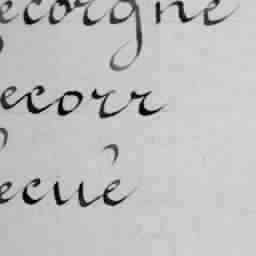 ecorgne
ecorr
ecuè